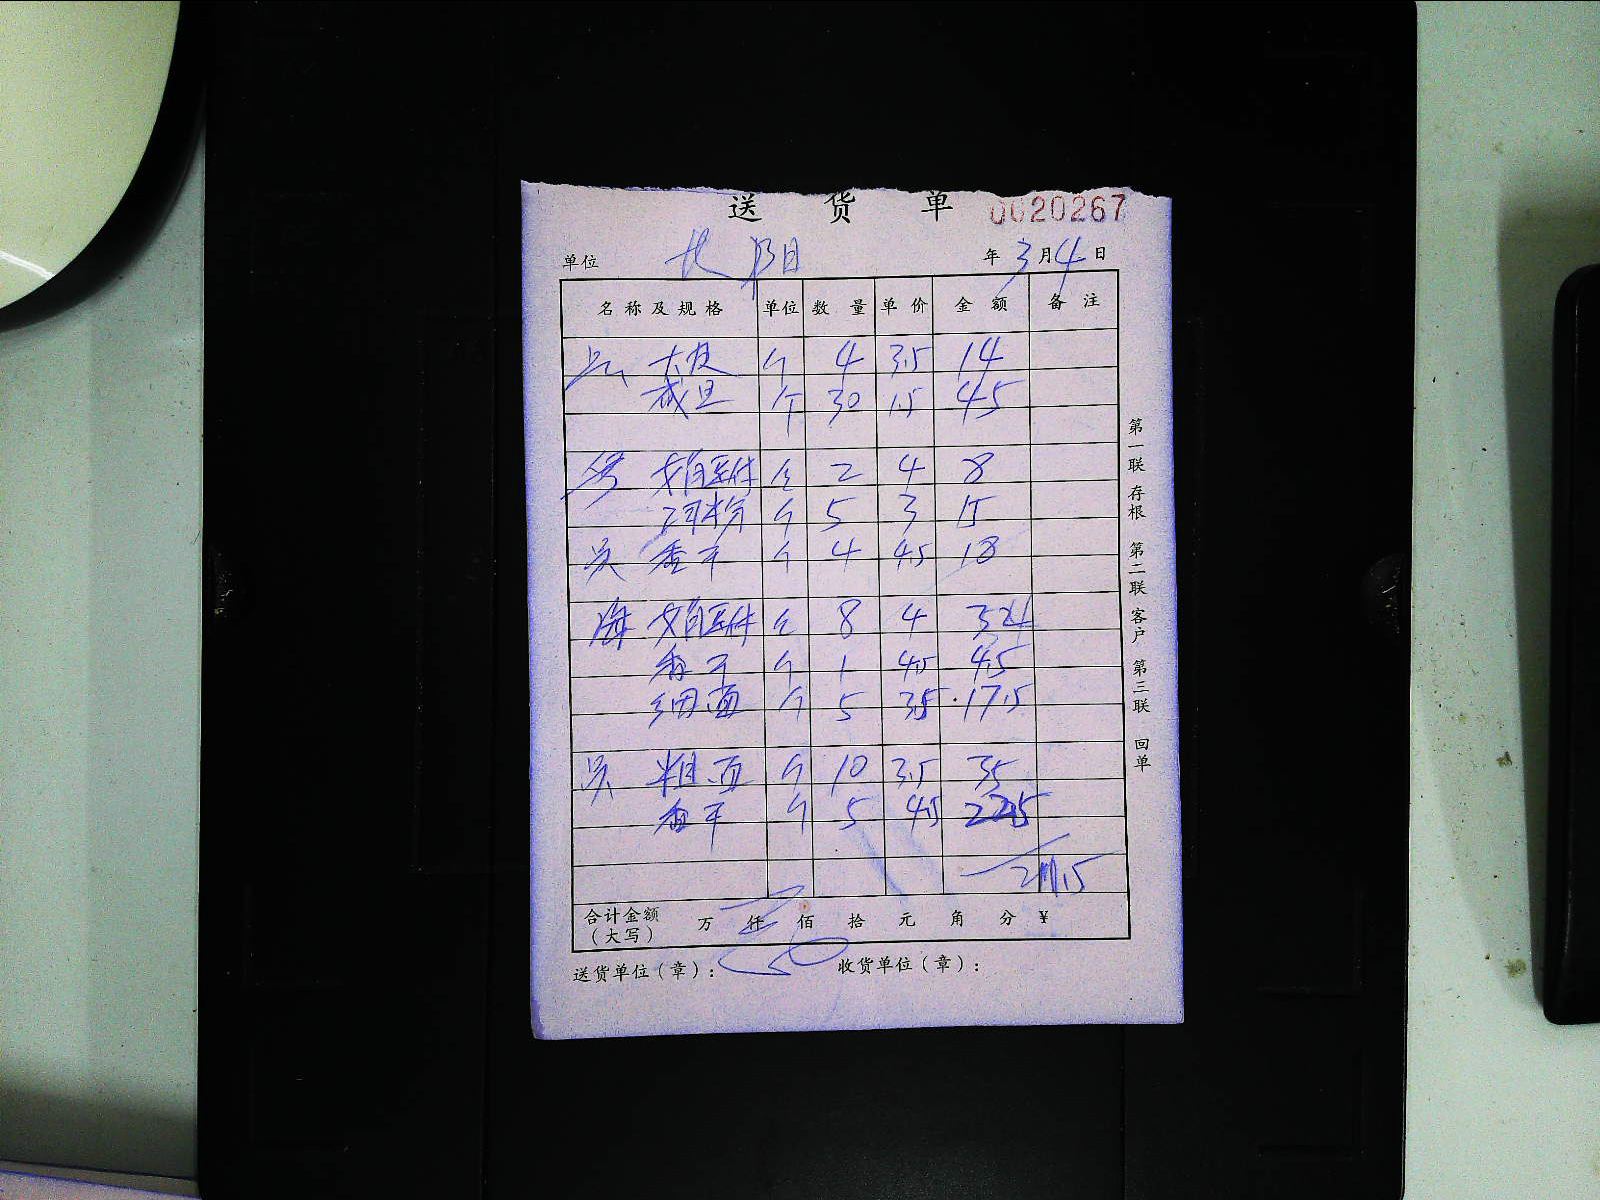 送 货 单 0020267
单位 北阳 年 3 月 4 日
名称及规格 单位 数量 单价 金额 备注
大皮 个 4 3.5 14
咸旦 个 30 1.5 45
2 4 8
河粉 个 5 3 15
吴 香干 个 4 4.5 18
海 8 4 32
香干 个 1 4.5 4.5
细面 个 5 3.5 17.5
吴 粗面 个 10 3.5 35
香干 个 5 4.5 22.5
211.5
合计金额（大写） 万 仟 佰 拾 元 角 分 ¥
送货单位（章）： 收货单位（章）：
第一联 存根 第二联 客户 第三联 回单